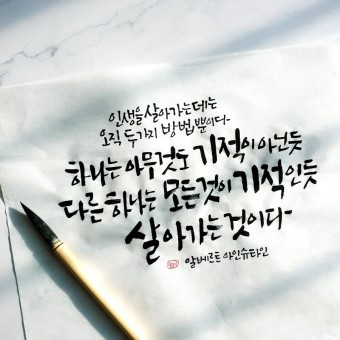 인생을 살아가는데는
오직 두가지 방법뿐이다-
하나는 아무것도 기적이 아닌듯
다른 하나는 모든것이 기적인듯
살아가는것이다-
알베르트 아인슈타인